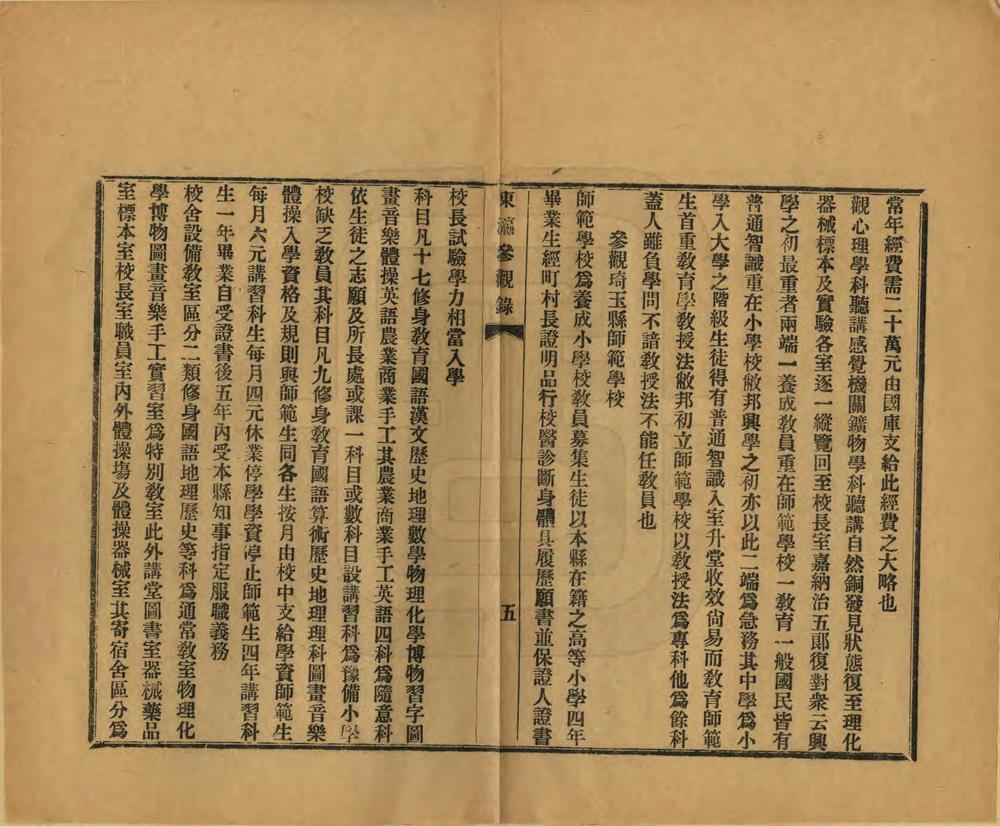 常年經費需二十萬元由國庫支給此經費之大略也
觀心理學科聽講感覺機關鑛物學科聽講自然銅發見狀態復至理化
器械標本及實驗各室逐一縱覽回至校長室嘉納治五郞復對衆云興
學之初最重者兩端一養成敎員重在師範學校一敎育一般國民皆有
普通智識重在小學校敝邦興學之初亦以此二端爲急務其中學爲小
學入大學之階級生徒得有普通智識入室升堂收效尙易而敎育師範
生首重敎育學敎授法敝邦初立師範學校以敎授法爲專科他爲餘科
蓋人雖負學問不諳敎授法不能任敎員也
參觀琦玉縣師範學校
師範學校爲養成小學校敎員募集生徒以本縣在籍之高等小學四年
畢業生經町村長證明品行校醫診斷身體具履歷願書並保證人證書
東瀛參觀錄
五
校長試驗學力相當入學
科目凡十七修身敎育國語漢文歷史地理數學物理化學博物習字圖
畫音樂體操英語農業商業手工其農業商業手工英語四科爲隨意科
依生徒之志願及所長處或課一科目或數科目設講習科爲豫備小學
校缺乏敎員其科目凡九修身敎育國語算術歷史地理理科圖畫音樂
體操入學資格及規則與師範生同各生按月由校中支給學資師範生
每月六元講習科生每月四元休業停學學資停止師範生四年講習科
生一年畢業自受證書後五年內受本縣知事指定服職義務
校舍設備敎室區分二類修身國語地理歷史等科爲通常敎室物理化
學博物圖畫音樂手工實習室爲特別敎室此外講堂圖書室器械藥品
室標本室校長室職員室內外體操場及體操器械室其寄宿舍區分爲